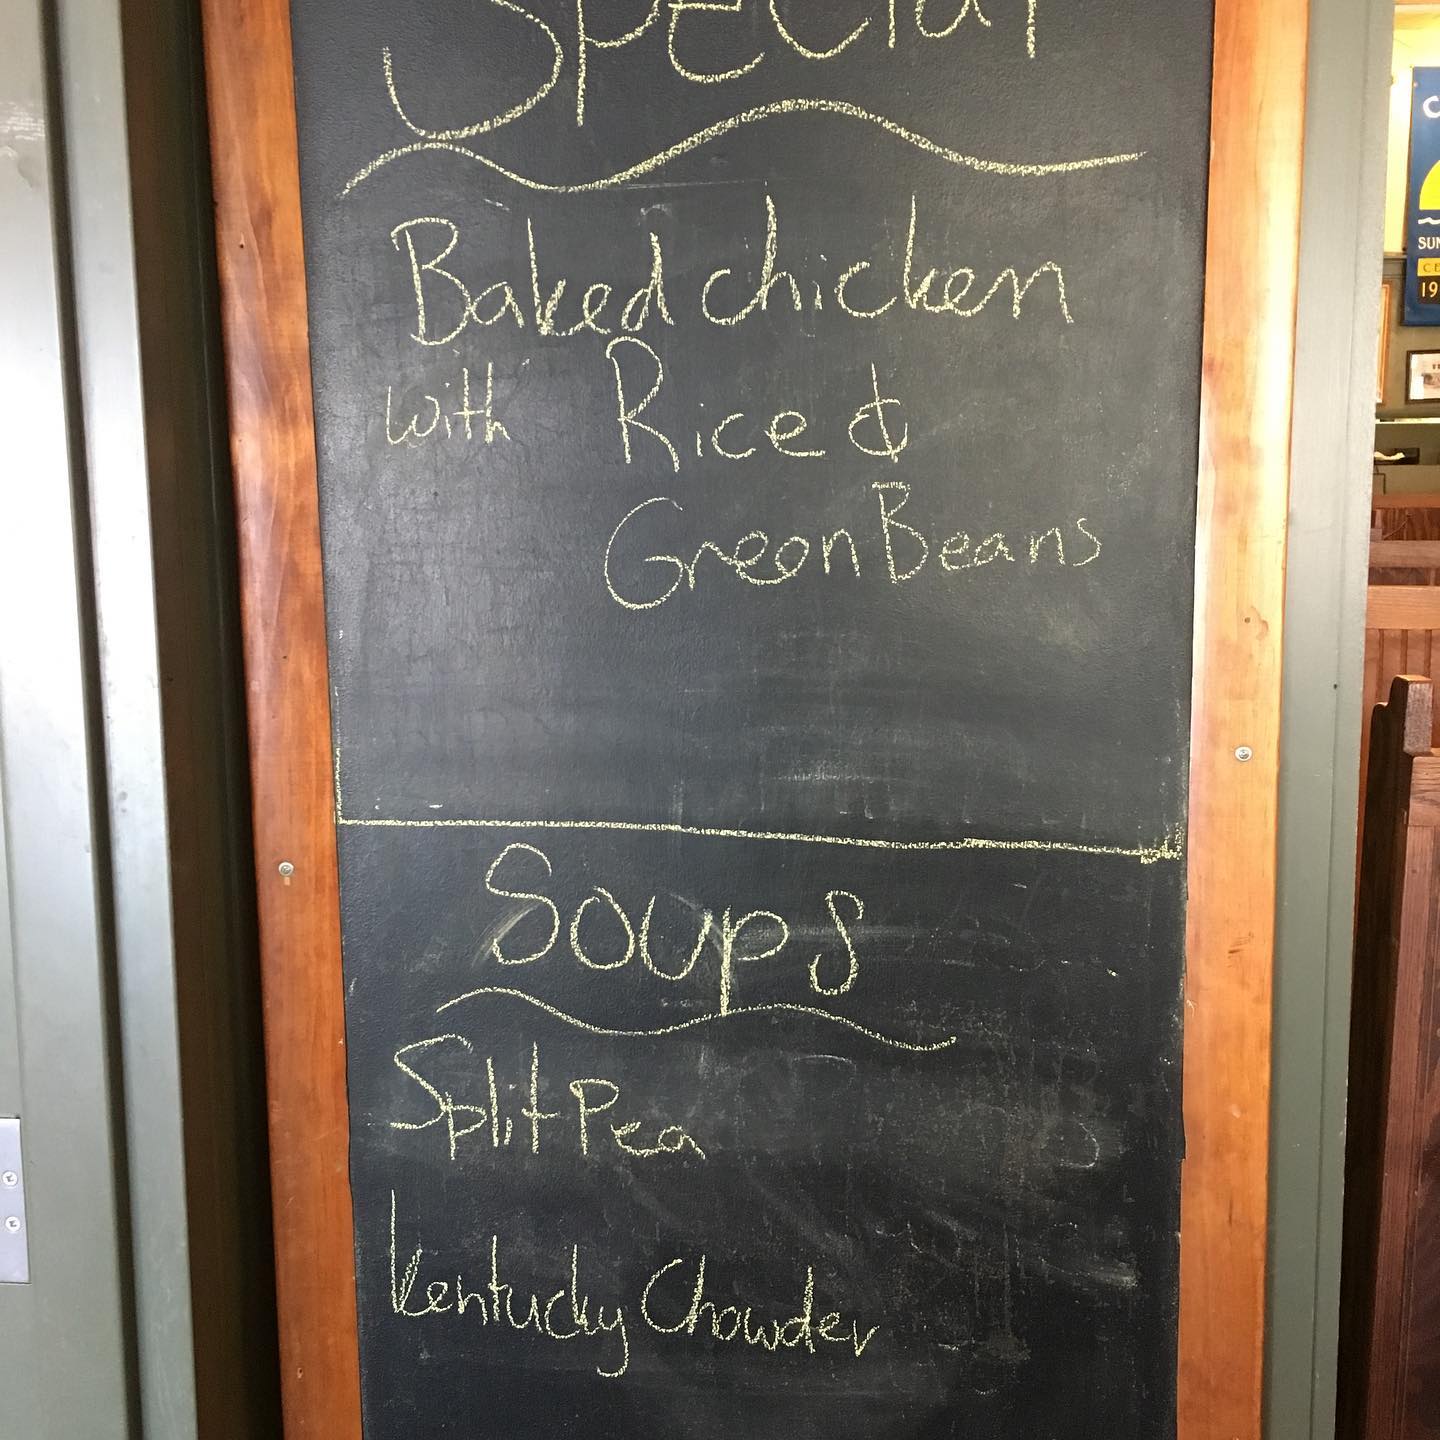 Special
Baked chicken
with Rice &
Green Beans
Soups
Split Pea
Kentucky Chowder
C
SUN
CE
19